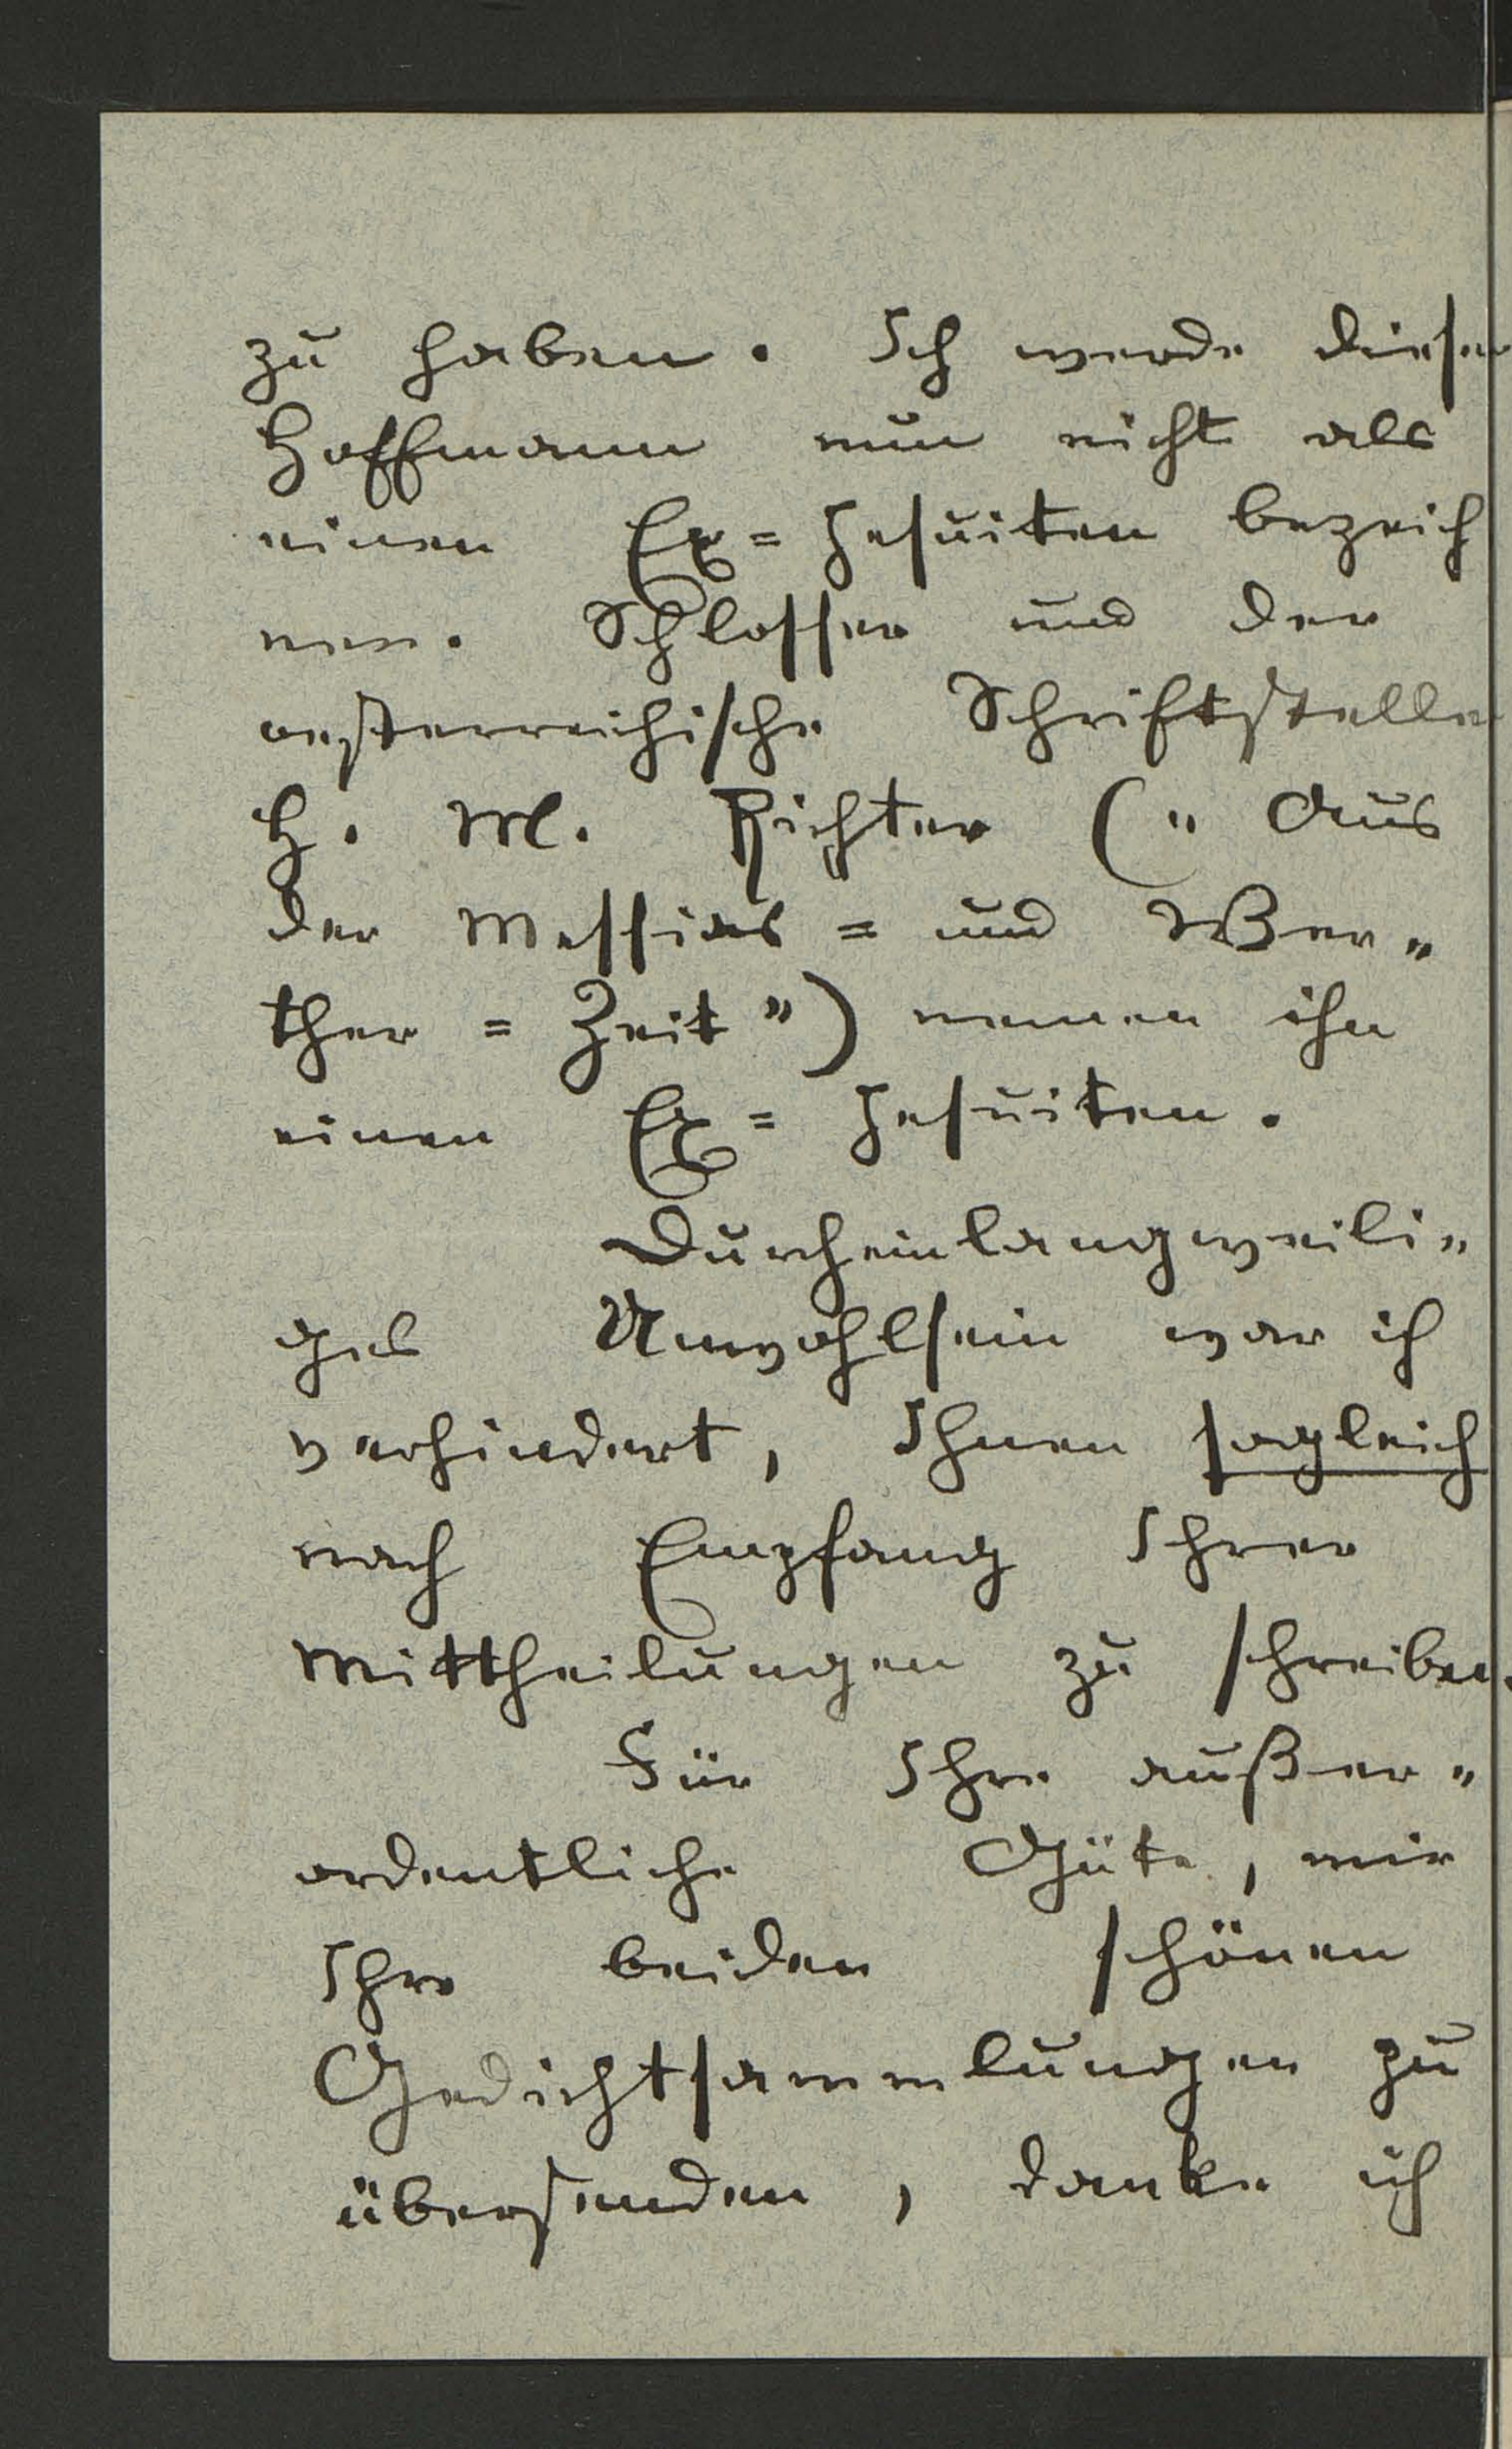 zu haben. Ich werde diesen
Hoffmann nun nicht als
einen Ex= Jesuiten bezeich
nen. Schlosser und der
oesterreichische Schriftsteller
H. M. Richter (" Aus
der Messias = und Wer"
ther = Zeit") nennen ihn
einen Ex= Jesuiten.
Durch ein langweili"
ges Unwohlsein war ich
verhindert, Ihnen sogleich
nach Empfang Ihrer
Mittheilungen zu schreiben.
Für Ihre außer"
ordentliche Güte, mir
Ihre beiden schönen
Gedichtsammlungen zu
übersenden, danke ich